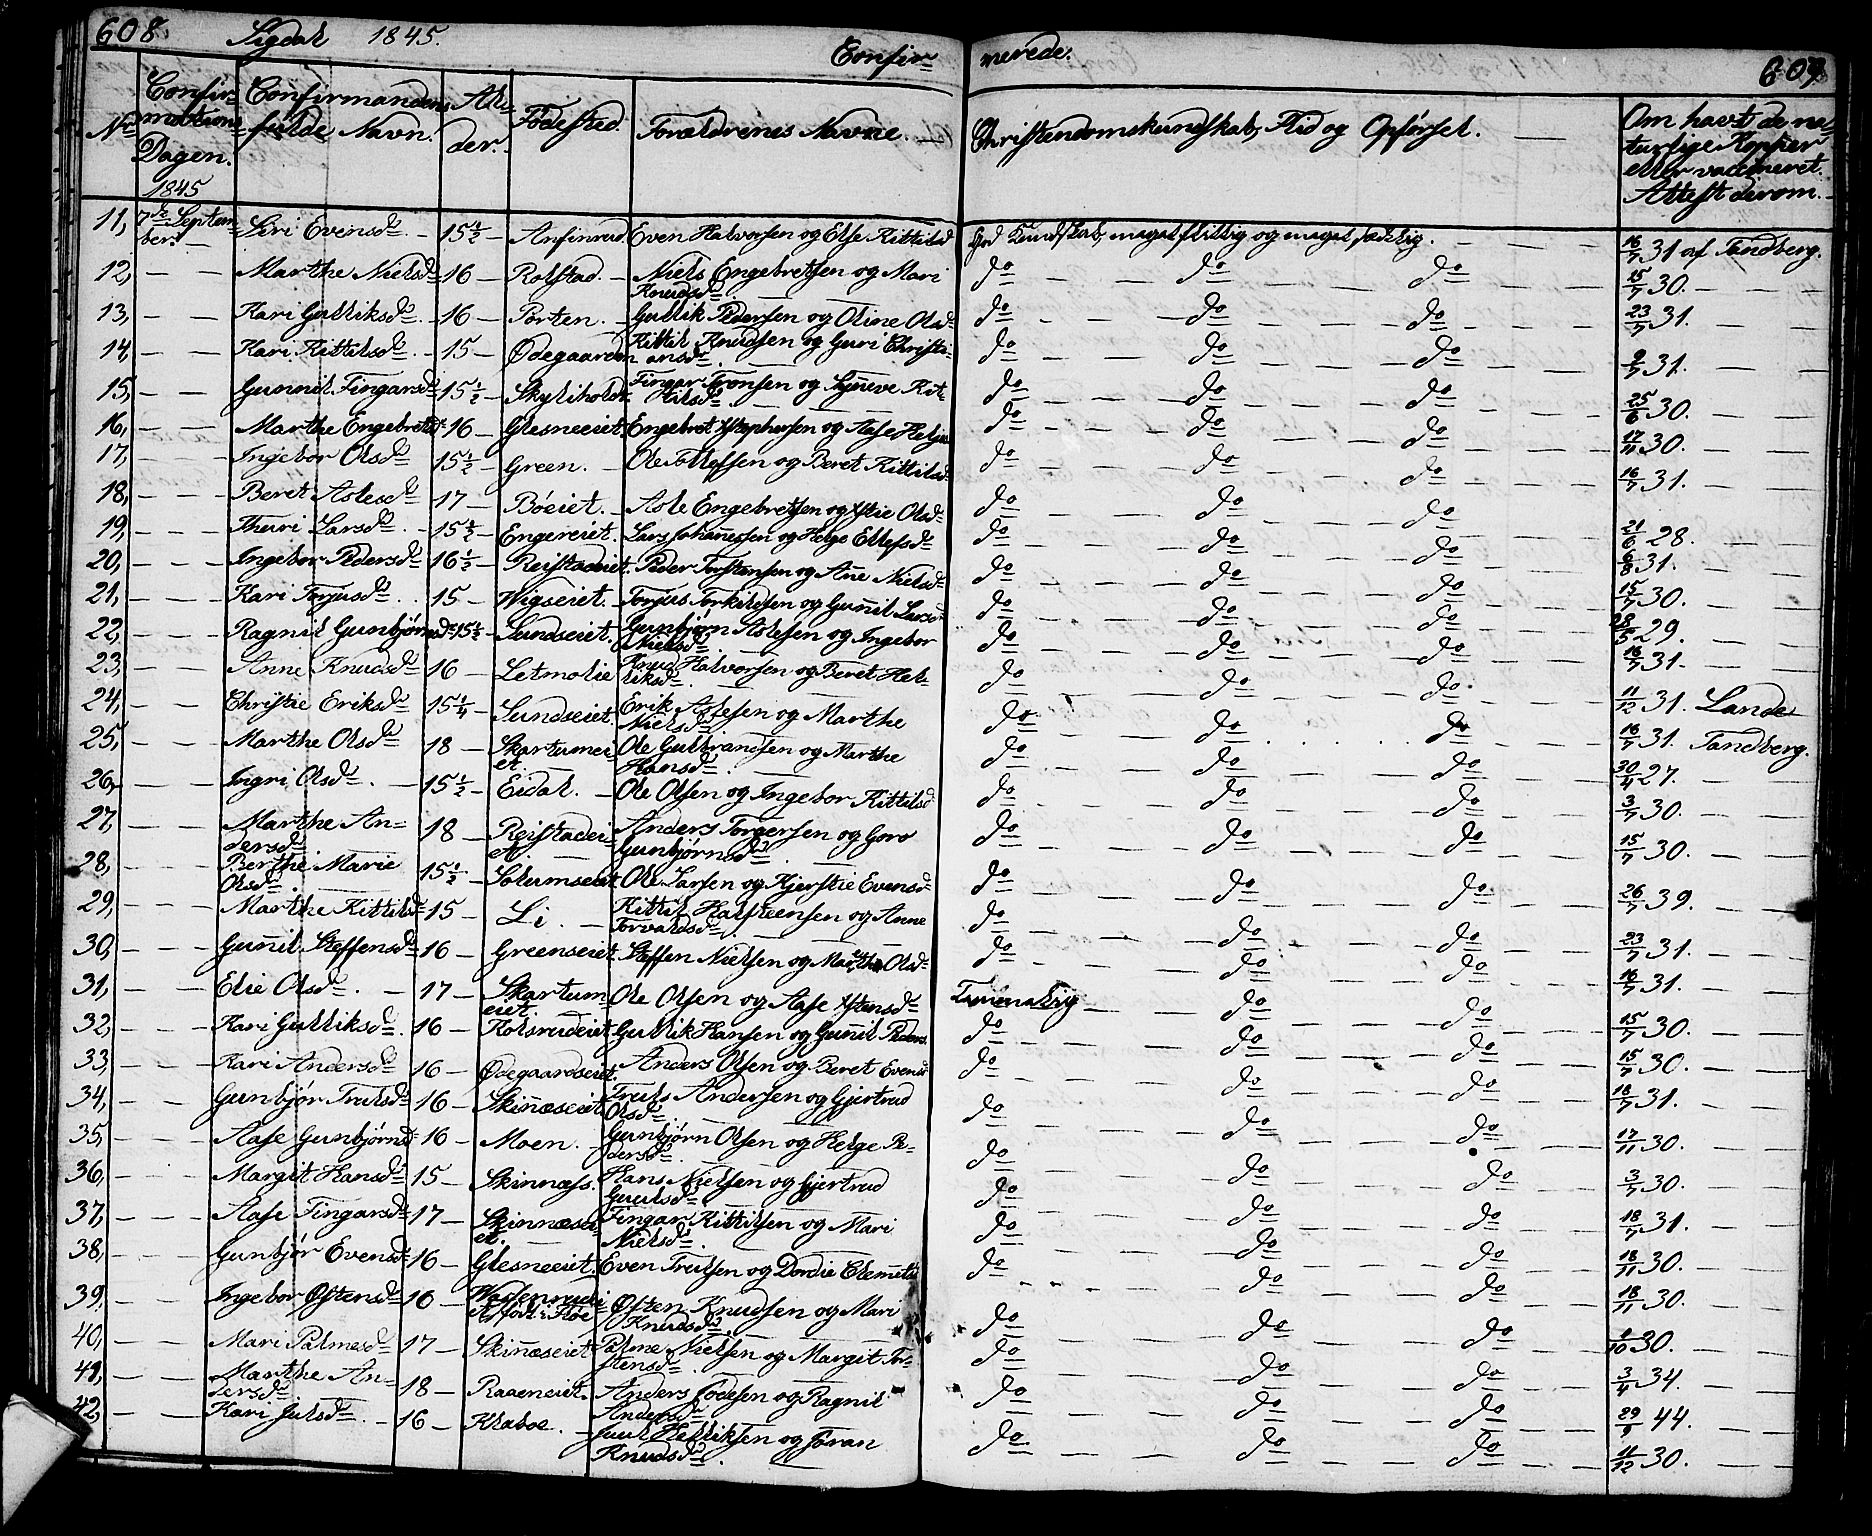 608 Sigdal 1845. Confir= merede. 609
No Confir= mations Dagen. 1845 Confirmandens fulde Navn. Al= der. Födested. Forældrenes Navne. Christendomskundskab, Flid og Opførsel. Om havt de na= turlige Kopper eller vaccineret. Attest derom.
11, 7de Septem ber. Siri Evensd. 15½ Anfinrud Even Halvorsen og Else Kittilsd God Kundskab, meget flittig og meget sædelig. 16/7 31 af Tandberg.
12, Marthe Nielsd 16 Rolstad. Niels Engebretsen og Mari Knudsd do do do 15/7 30.
13, Kari Gulliksd. 16 Porten. Gullik Pedersen og Oline Olsd do do do 23/7 31.
14, Kari Kittilsd. 15 Ødegaarden Kittil Knudsen og Guri Christi= ansd. do do do 9/7 31.
15, Gunnil Fingarsd 15½ Fingar Tronsen og Synneve Kit= tilsd do do do 25/6 30.
16, Marthe Engebretsd 16 Glesneeiet. Engebret og Aase do do do 17/11 30.
17, Ingebor Olsd 15½ Green. Ole Tollefsen og Beret Kittilsd do do do 16/7 31.
18, Beret Aslesd 17 Böeiet. Asle Engebretsen og Olsd do do do 21/6 28.
19, Thuri Larsd. 15½ Engereiet. Lars Johannessen og Helge Ellefsd do do do 6/8 31.
20, Ingebor Pedersd 16½ Reistadeiet. Peder Torstensen og Anne Nielsd do do do 15/7 30.
21, Kari Torjusd. 15 Wigseiet. Torjus Torkildsen og Gunnil Larsd do do do 28/5 29.
22, Ragnil Gunbjörnsd 15½ Sundseiet. Gunbjörn Aslesen og Ingebor Nielsd do do do 16/7 31.
23, Anne Knudsd 16 Letmolie Knud Halvorsen og Beret Hel= liksd. do do do 11/12 31. Lande
24, Christie Eriksd 15¼ Sundseiet. Erik Aslesen og Marthe Nielsd do do do 16/7 31. Tandberg.
25, Marthe Olsd 18 Skartumei et. Ole Gulbrandsen og Marthe Hansd. do do do 30/4 27.
26, Ingri Olsd. 15½ Eidal. Ole Olsen og Ingebor Kittilsd do do do 3/7 30.
27, Marthe An= dersd 18 Reistadei et Anders Torgersen og Goro Gunbjörnsd. do do do 15/7 30.
28, Berthe Marie Olsd. 15½ Solumseiet Ole Larsen og Kjerstie Evensd do do do 26/7 39.
29, Marthe Kittilsd 15 Li. Kittil Halsteensen og Anne Torvaldsd. do do do 23/7 31.
30, Gunnil Steffensd 16 Greenseiet. Steffen Nielsen og Marthe Olsd do do do 16/7 31.
31, Elie Olsd. 17 Skartum= eiet. Ole Olsen og Aase Temmelig do do 15/7 30.
32, Kari Gulliksd. 16 Kolsrudeiet. Gullik Hansen og Gunnil Pedersd. do do do 15/7 30.
33, Kari Andersd 16 Ødegaardseiet. Anders Olsen og Beret Evensd do do do 18/7 31.
34, Gunbjör Trulsd 16 Skinnæseiet Truls Andersen og Gjertrud Olsd. do do do 17/11 30.
35, Aase Gunbjörnsd 16 Moen. Gunbjörn Olsen og Helge Pe= dersd. do do do 3/7 30.
36, Margit Hansd 15 Skinnæss. Hans Nielsen og Gjertrud do do do 18/7 31.
37, Aase Fingarsd 17 Skinnæsei et. Fingar Kittilsen og Mari Nielsd. do do do 18/11 30.
38, Gunbjör Evensd 16 Glesneeiet. Even Trulsen og Dordie Clemetsd do do do 18/11 30.
39. Ingebor Østensd 16 Østen Knudsen og Mari Knudsd do do do 30.
40, Mari Palmesd 17 Skinnæseiet Palme Nielsen og Margit Tor= stensd. do do do 3/4 34.
41, Marthe An= dersd 18 Raaeneiet. Anders og Ragnil Andersd do do do 29/9 44.
42, Kari Julsd. 16 Klaboe. Juul Helliksen og Joran Knudsd. do do do 11/12 30.